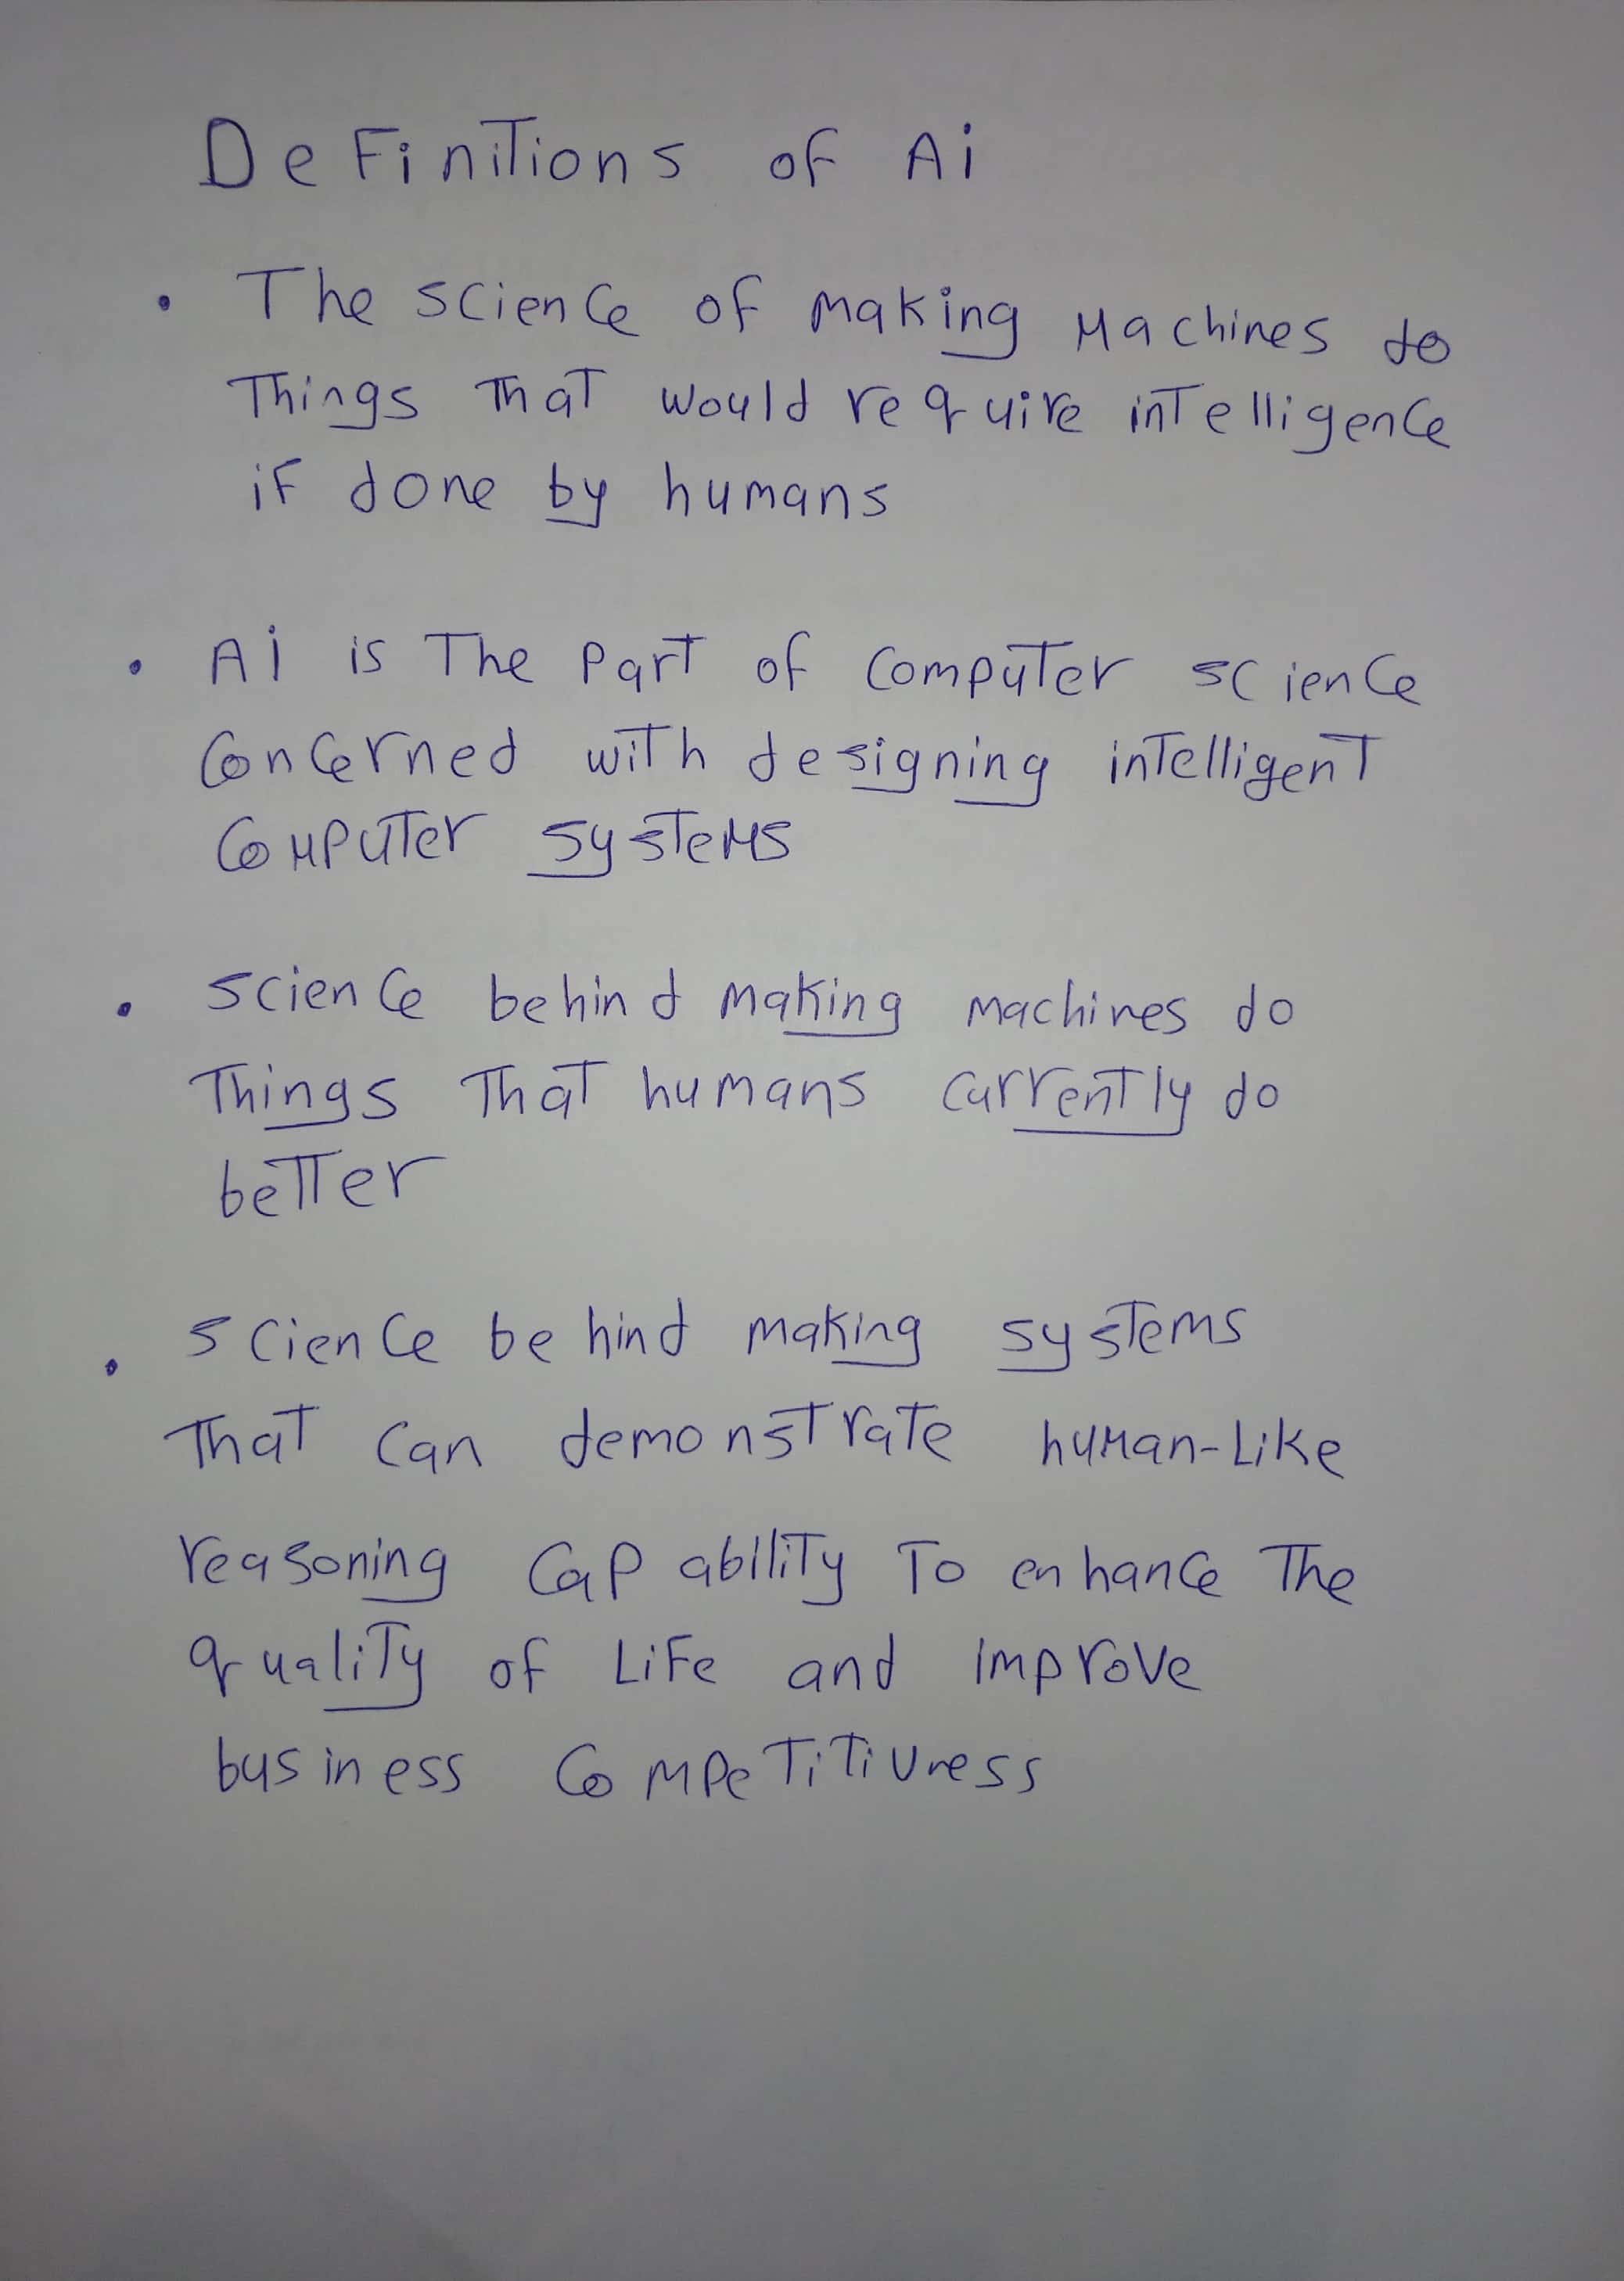 Definitions of Ai
• The science of making Machines do
Things That would require intelligence
if done by humans
• Ai is The part of computer science
Concerned with designing intelligent
Computer systems
• science behind making machines do
Things That humans currently do
better
• science behind making systems
That can demonstrate human-Like
reasoning Capability To enhance The
quality of Life and improve
business CompeTiTivness